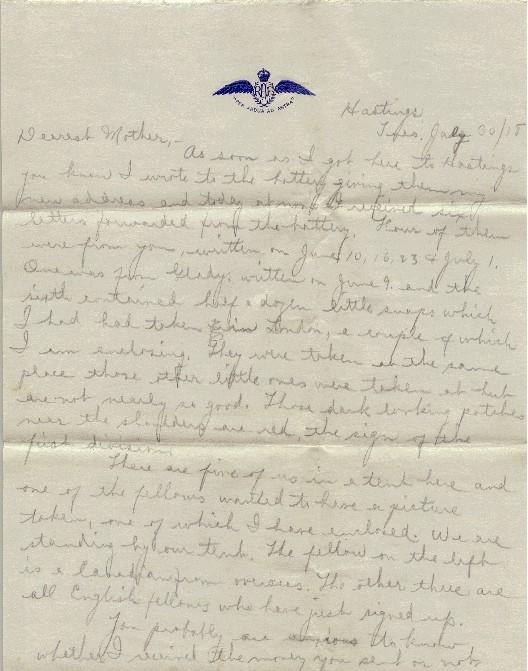 RAF
PER ARDUA AD ASTRA
Hastings
Tues. July 30/18
Dearest Mother,-
As soon as I got here to Hastings
you know I wrote to the battery giving them my
new address and today at noon I received six
letters forwarded from the battery. Four of them
were from you, written on June 10, 16, 23 & July 1.
One was from Gladys written on June 9. and the
sixth contained half a dozen little snaps which
I had had taken in London, a couple of which
I am enclosing. They were taken at the same
place those other little ones were taken at but
are not nearly so good. Those dark looking patches
near the shoulders are red, the sign of the
first division.
There are five of us in a tent here and
one of the fellows wanted to have a picture
taken, one of which I have enclosed. We are
standing by our tent. The fellow on the left
is a Canadian from overseas. The other three are
all English fellows who have just signed up.
You probably are anxious to know
whether I received the money you send or not